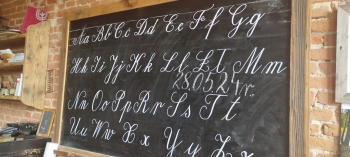 Aa Bb Cc Dd Ee Ff Gg
Hh Ii Jj Kk Ll Łł Mm
28.05.21r.
Nn Oo Pp Rr Ss Tt
Uu Ww Xx Yy Zz